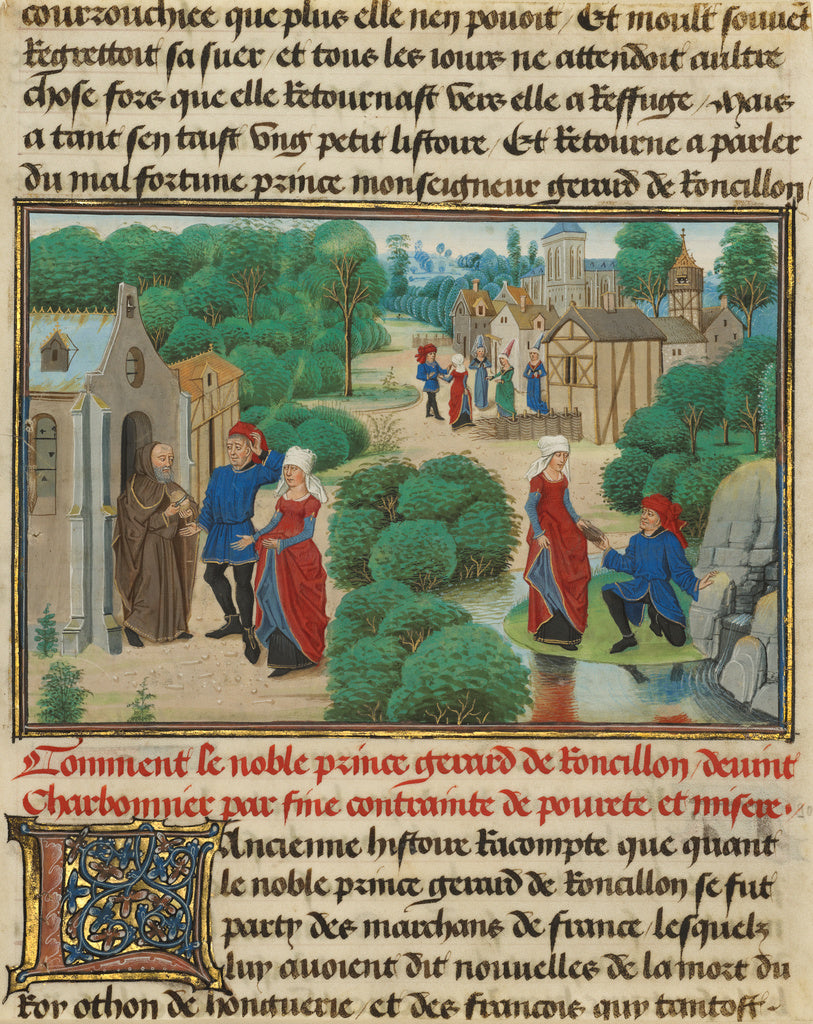 courrouchiee que plus elle nen pouoit / Et moult souuet
Regrettoit sa suer / et tous les iours ne attendoit aultre
chose fors que elle Retournast vers elle a Reffuge / Mais
a tant sen taist vng petit listoire / Et Retourne a parler
du mal fortune prince monseigneur gerard de Roncillon
Comment le noble prince gerard de Roncillon / deuint
Charbonnier par fine contrainte de pourete et misere .
Lancienne histoire Racompte que quant
le noble prince gerard de Roncillon se fut
party des marchans de france / lesquelz
luy auoient dit nouuelles de la mort du
Roy othon de honguerie / et des francois quy tantost -